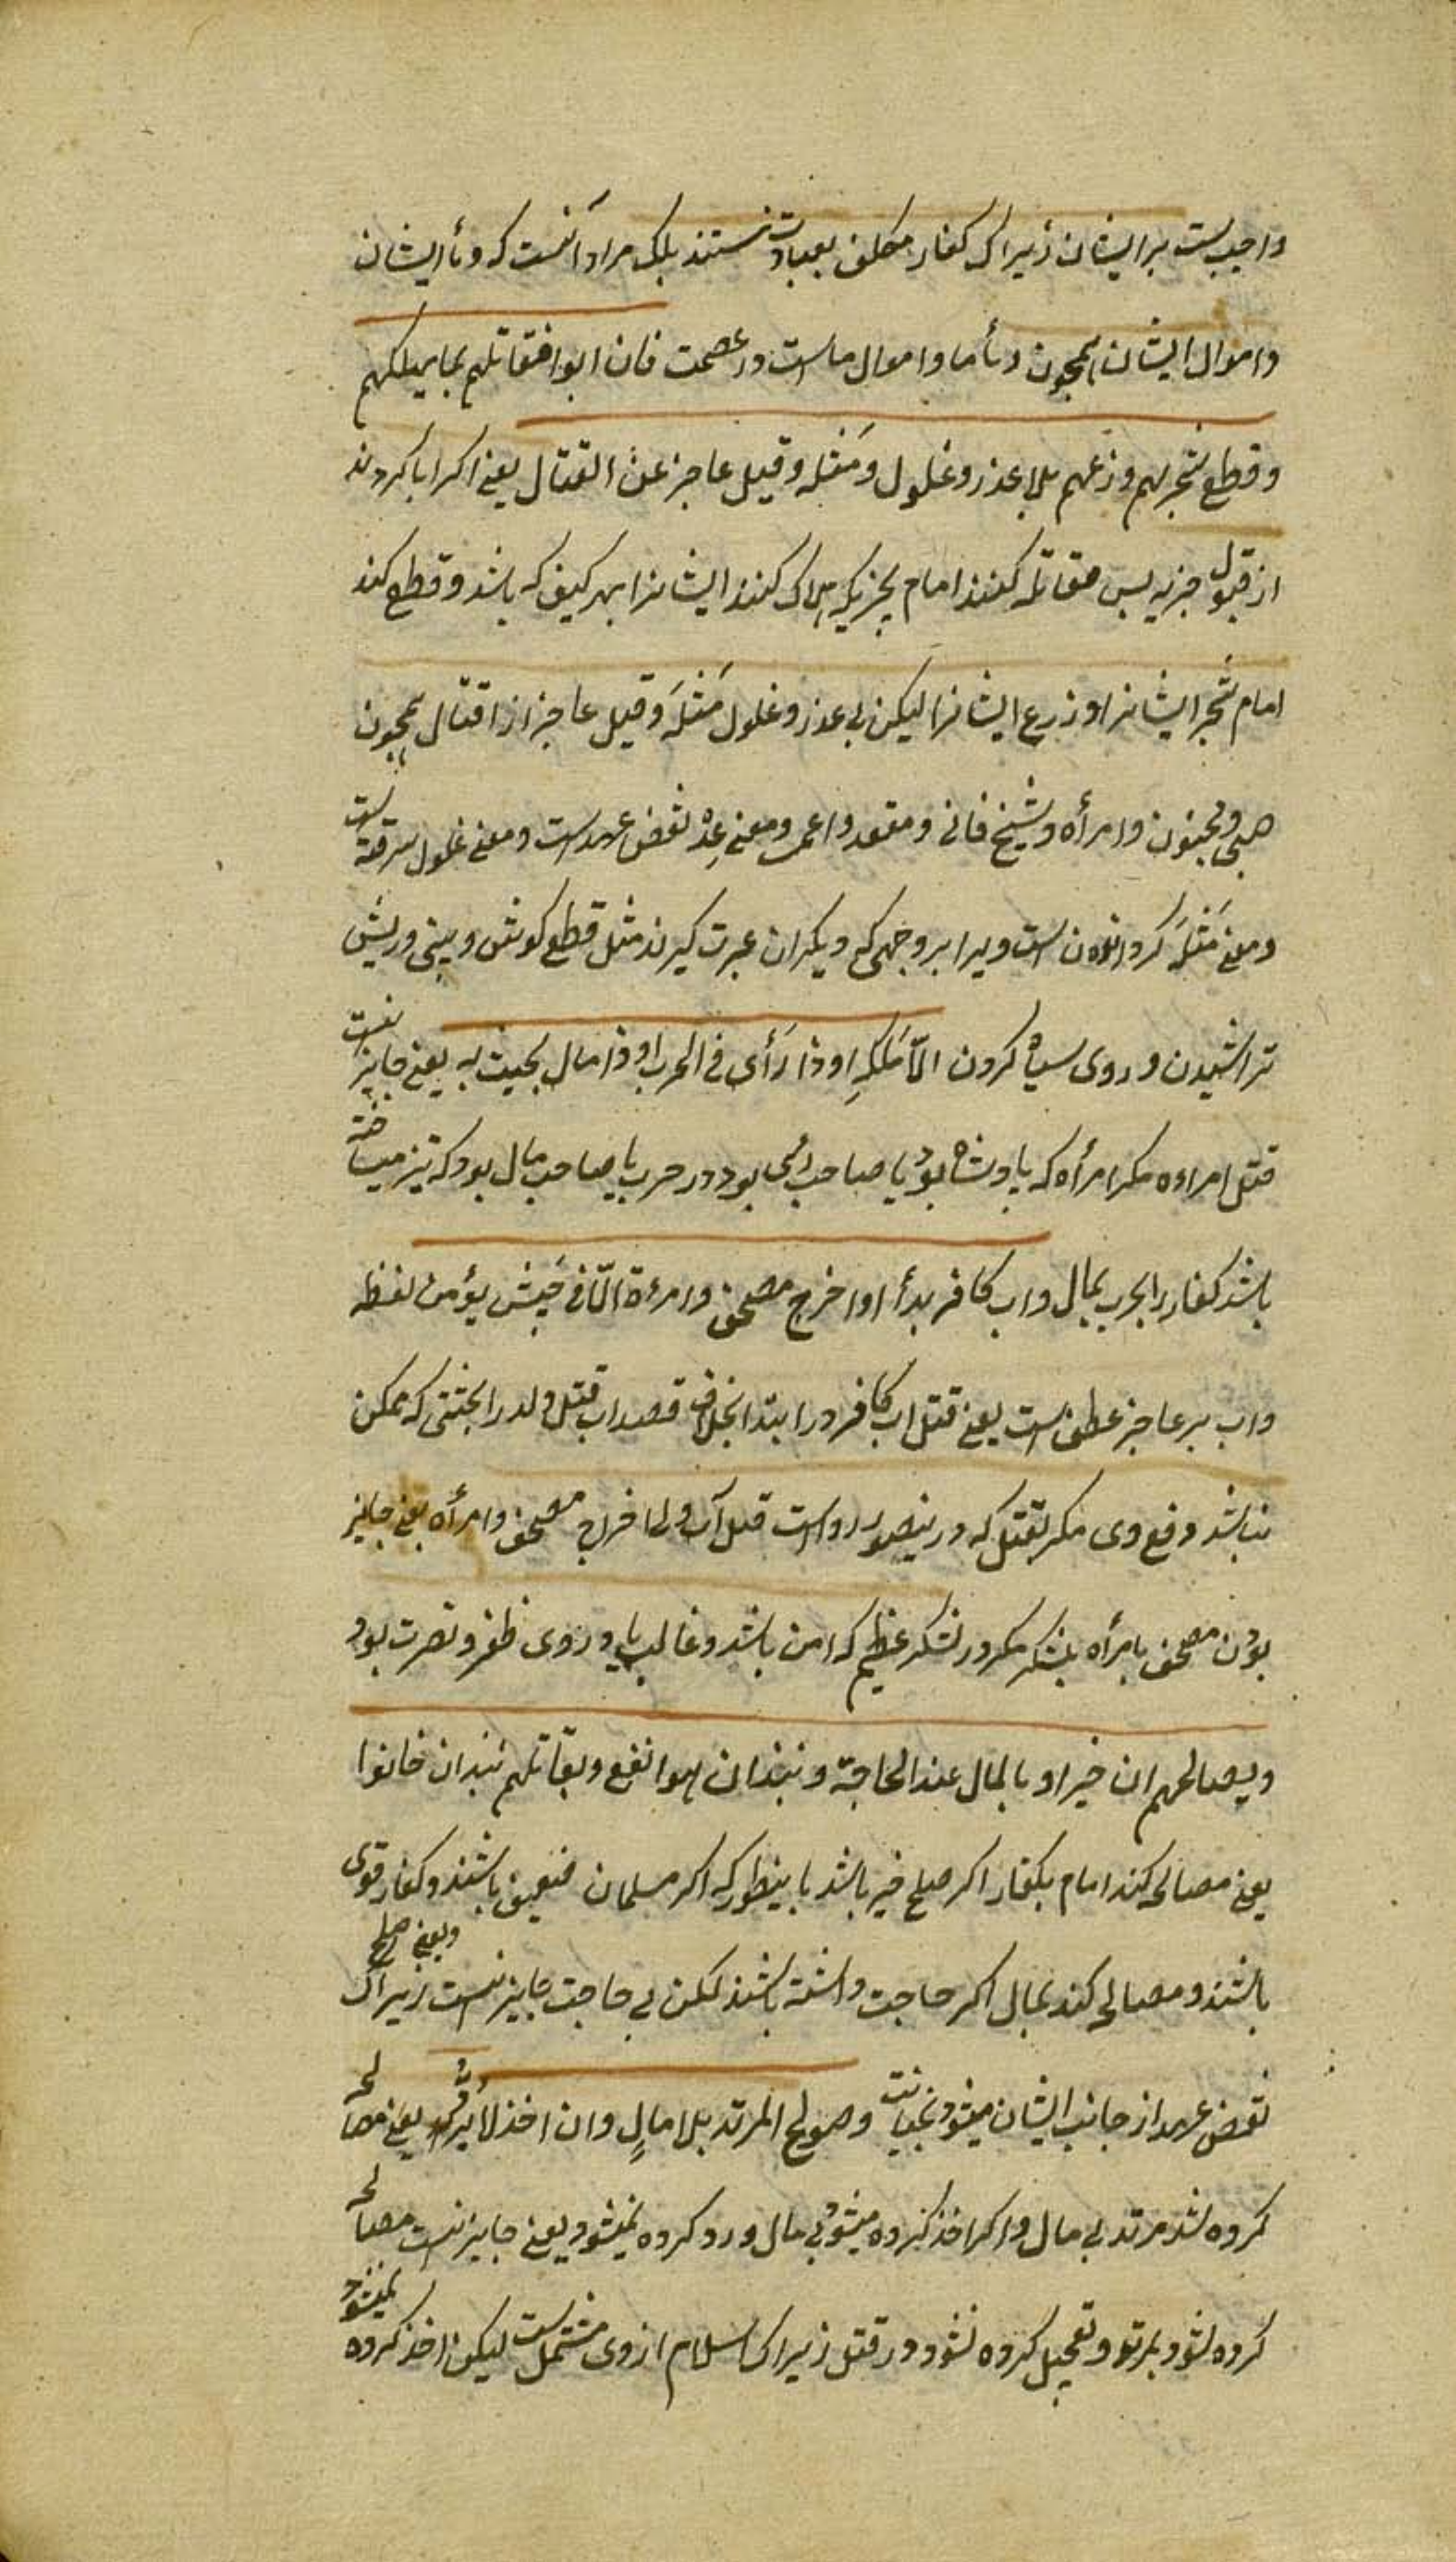 واجبست بر ایشان زیراک کفار مکلف بعبادت نیستند بلک مراد آنست که دمأ ایشان
و اموال ایشان همچون دمأ ما و اموال ماست در عصمت فان ابوا فقاتلهم بما یهلکهم
و قطع شجرهم و زرعهم بلا عذر و غلول و مَثله و قتل عاجز عن القتال یعنی اکر ابا کردند
از قبول جزیه پس مقاتله کنند امام بچیزیکه هلاک کنند ایشانرا بهر کیف که باشد و قطع کند
امام شَجر ایشانرا و زرع ایشانرا لیکن بی عذر و غلول مَثلَه و قتل عاجز از اقتال همچون
صبی و مجنون و امرأه و شیخ فانی و مقعد و اعمی و معنی عذر نقض عهد است و معنی غلول سرقه است
و معنی مَثلَه کردانیدن است ویرا بر وجهی که دیکران عبرت کیرند مثل قطع کوش و بینی و ریش
تراشیدن و روی سیاه کردن الّا مَلکهِ او ذا رَأی فی الحرب او ذا مال یحیث به یعنی جایز نیست
قتل امراءه مکر امرأه که پادشاه بود یا صاحب رأی بود در حرب یا صاحب مال بود که تیز میساخته
باشد کفار را بحرب بمال و اب کافر بدأ او اخرج مصحف و امرءة الّا فی جَیش یؤمن لفظه
و اب بر عاجز عطف است یعنی قتل اب کافر در ابتدا بخلاف قصد اب قتل ولد را بحثیتی که ممکن
نباشد دفع وی مکر بقتل که درینصور رواست قتل آب و اخراج مصحف و امرأه یعنی جایز
بودن مصحف با مرأه بلشکر مکر در لشکر عظیم که امن باشد و غالب باید و روی ظفر و نصرت بود
و یصالحهم ان خیر او بالمال عند الحاجة و نبذ ان هو انفع و یقاتلهم نبذ ان خانوا
یعنی مصالح کند امام بکفار اکر صلح خیر باشد باینطور که اکر مسلمان ضعیف باشند و کفار قوی
باشند و مصالح کند بمال اکر حاجت داشته باشند لکن بی حاجت جایز نیست زیراک و یعنی صلح
نقض عهد از جانب ایشان میشود بخیانت و صولح المرتد بلا مالٍ و ان اخذ لا یُردّ یعنی مصالحه
کروه شد مرتد بی مال و اکر اخذ کرده میشود بی مال و رد کرده نمیشود یعنی جایز نیست مصالحه
کروه شود بمرتد و تعجیل کرده نشود در قتل زیراک اسلام از وی مشتمل است لیکن اخذ کرده نمیشود